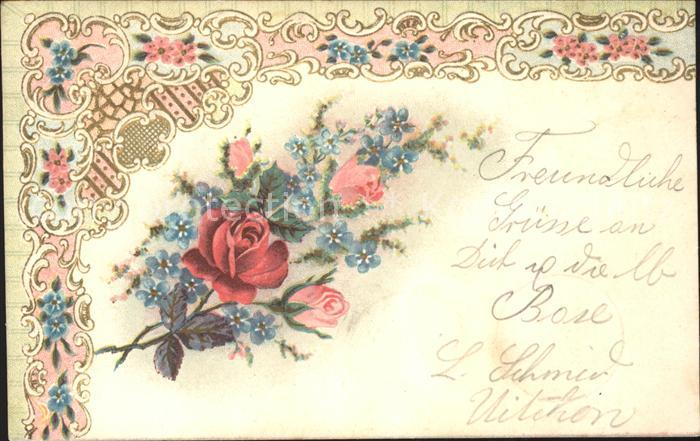 Freundliche
Grüsse an
Dich u die lb
Base
L. Schmid
Uitikon